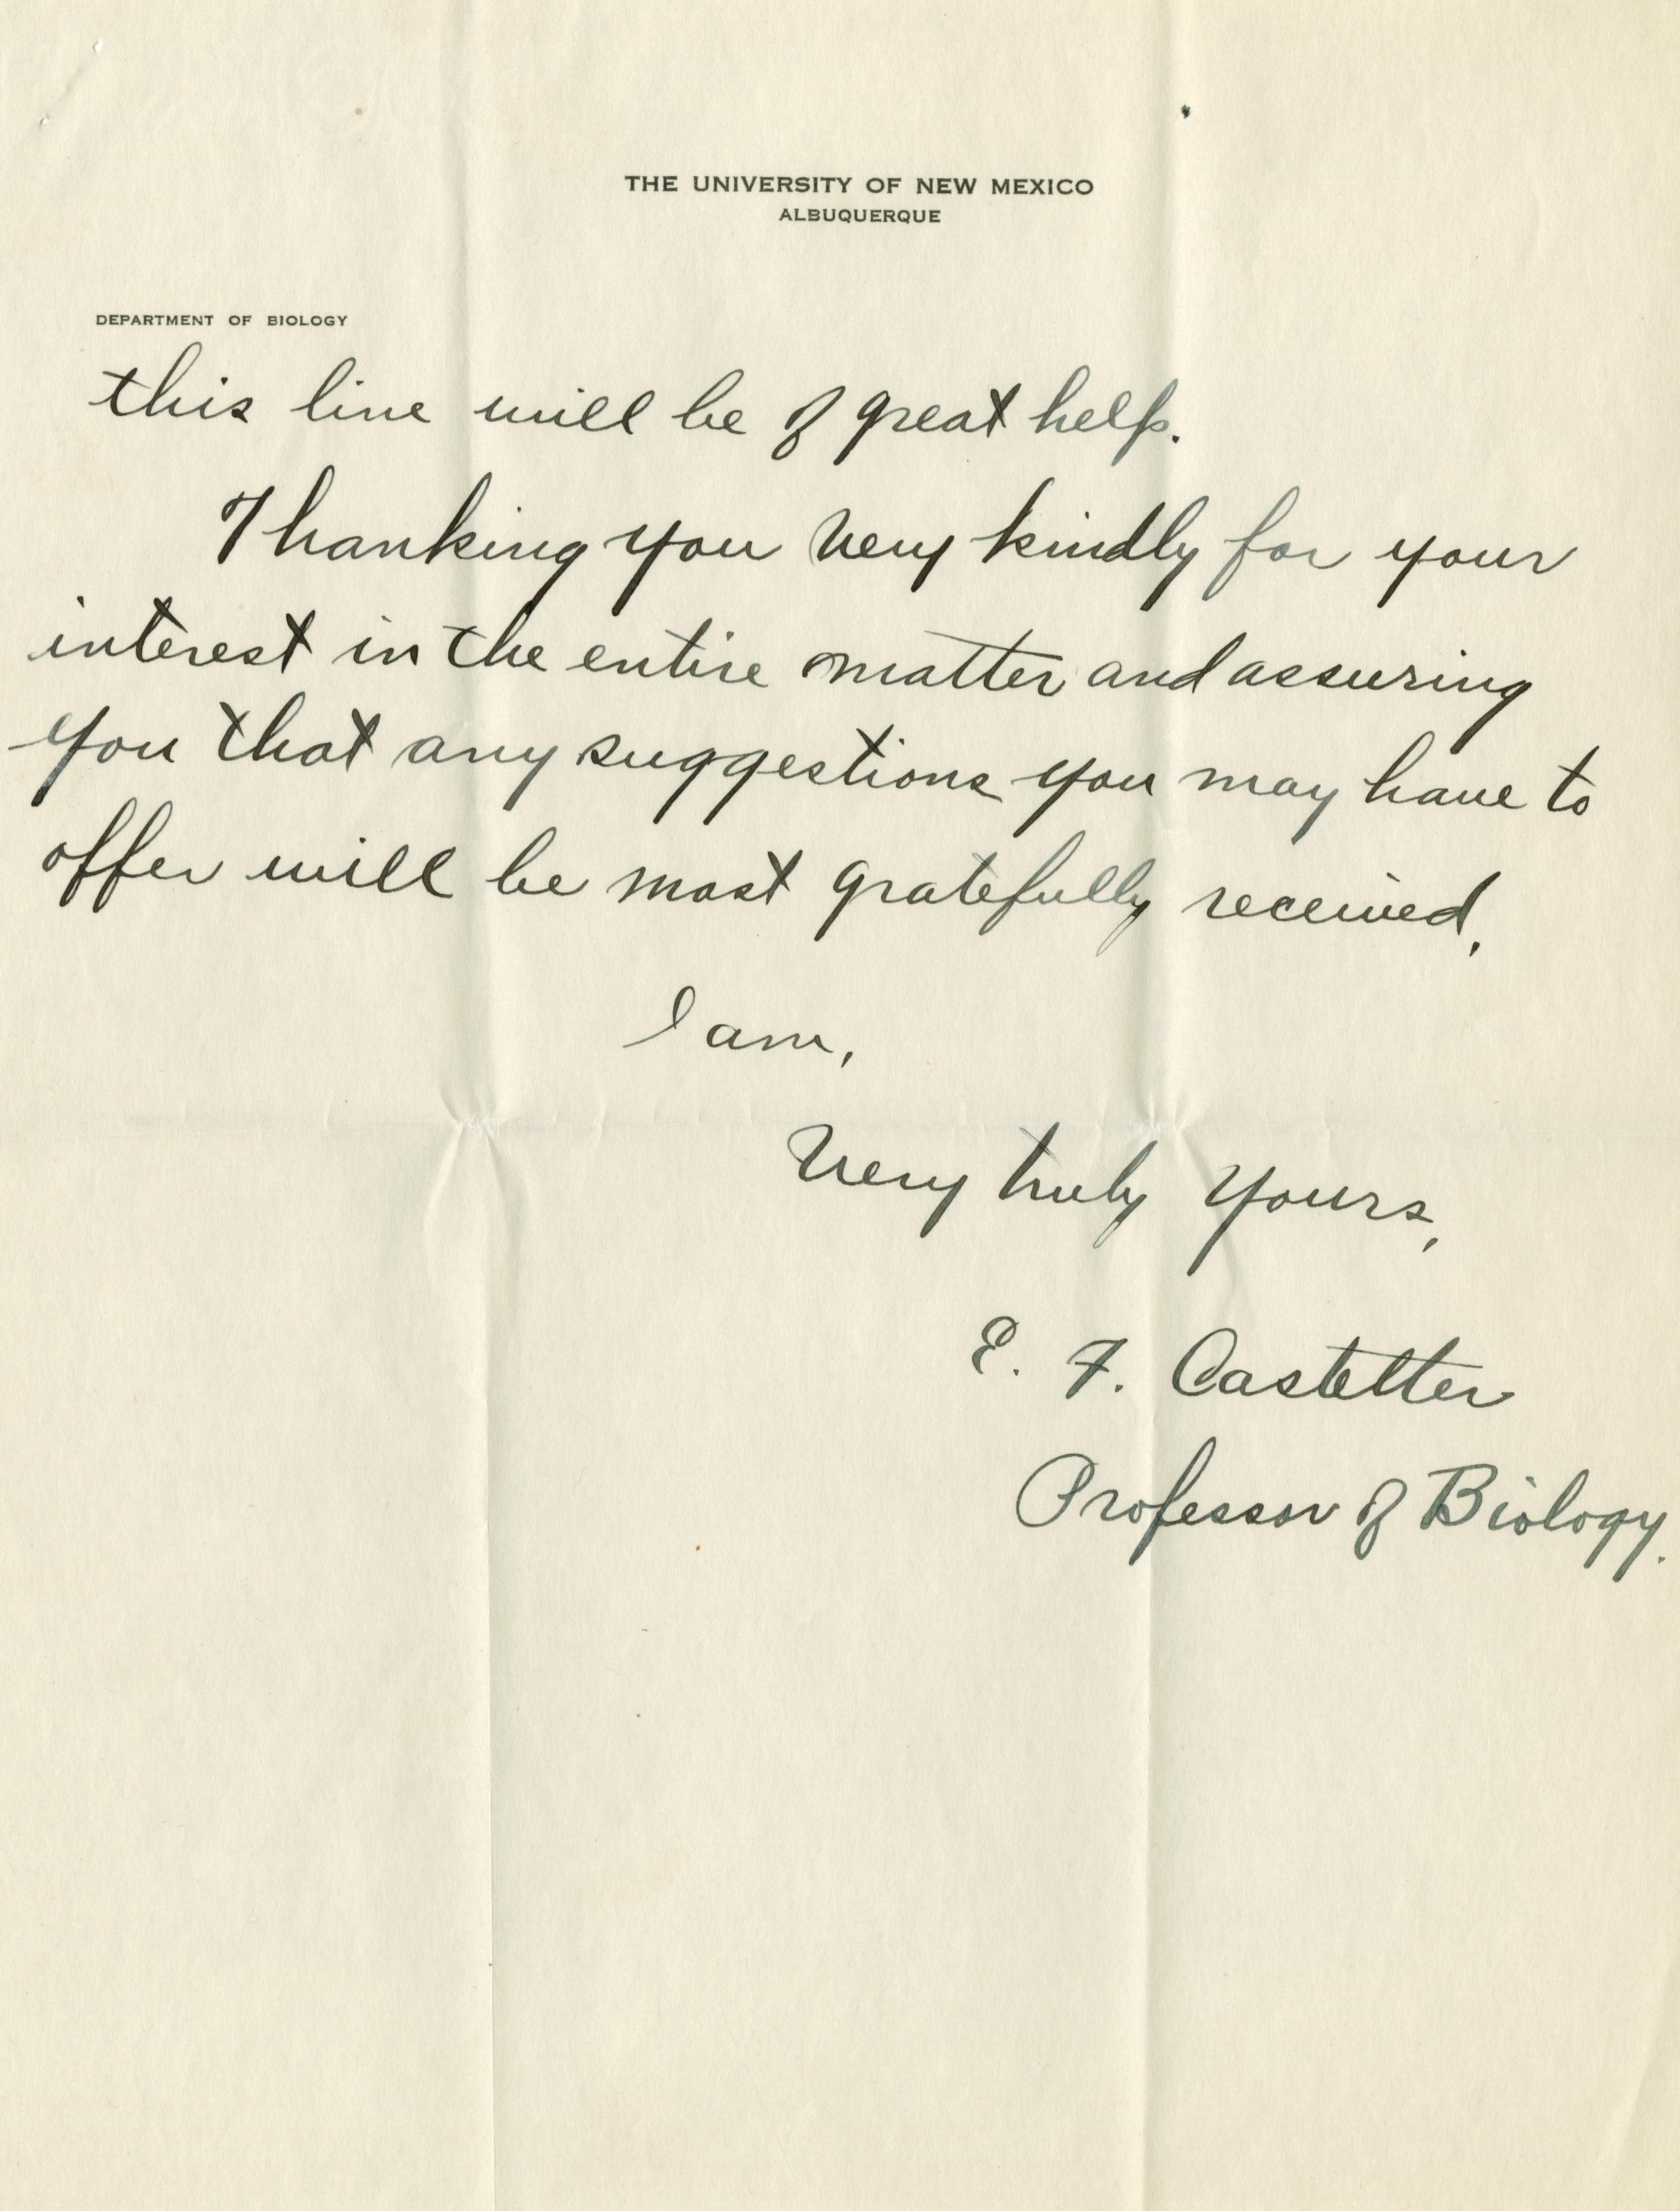 THE UNIVERSITY OF NEW MEXICO
ALBUQUERQUE
DEPARTMENT OF BIOLOGY
this line will be of great help.
Thanking you very kindly for your
interest in the entire matter and assuring
you that any suggestions you may have to
offer will be most gratefully received,
I am,
Very truly yours,
E. F. Castetter
Professor of Biology.